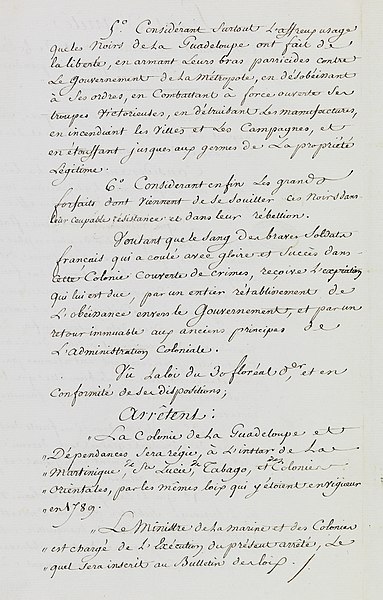 5.º Considérant Surtout L'affreux usage
que les Noirs de La Guadeloupe ont fait de
la liberté, en armant Leurs bras parricides contre
Le Gouvernement de la Métropole, en désobéissant
à Ses ordres, en Combattant à force ouverte Ses
troupes Victorieuses, en détruisant Les manufactures,
en incendiant les Villes et Les Campagnes, et
en étouffant jusques aux germes de La propriété
Légitime.
6.º Considerant enfin Les grands
forfaits dont Viennent de se Souiller ces Noirs dans
leur coupable résistance et dans leur rebellion.
Voulant que le Sang des braves Soldats
français qui a coulé avec gloire et Succès dans
cette Colonie Couverte de crimes, reçoive L'expiation
qui lui est due, par un entier rétablissement de
L'obéissance envers le Gouvernement, et par un
retour immuable aux anciens principes de
L'administration Coloniale.
Vû La loi du 30 floréal der, et en
Conformité de ses dispositions;
Arrêtent:
"La Colonie de La Guadeloupe et
"Dépendances Sera régie, à L'instar de La
"Martinique, de Ste Lucie, de Tabago, et des Colonies
"orientales, par les mêmes loix qui y étoient en vigueur
"en 1789.
"Le Ministre de la marine et des Colonies
"est chargé de L'Exécution du présent arrêté, Le
"quel Sera inscrit au Bulletin des loix. /